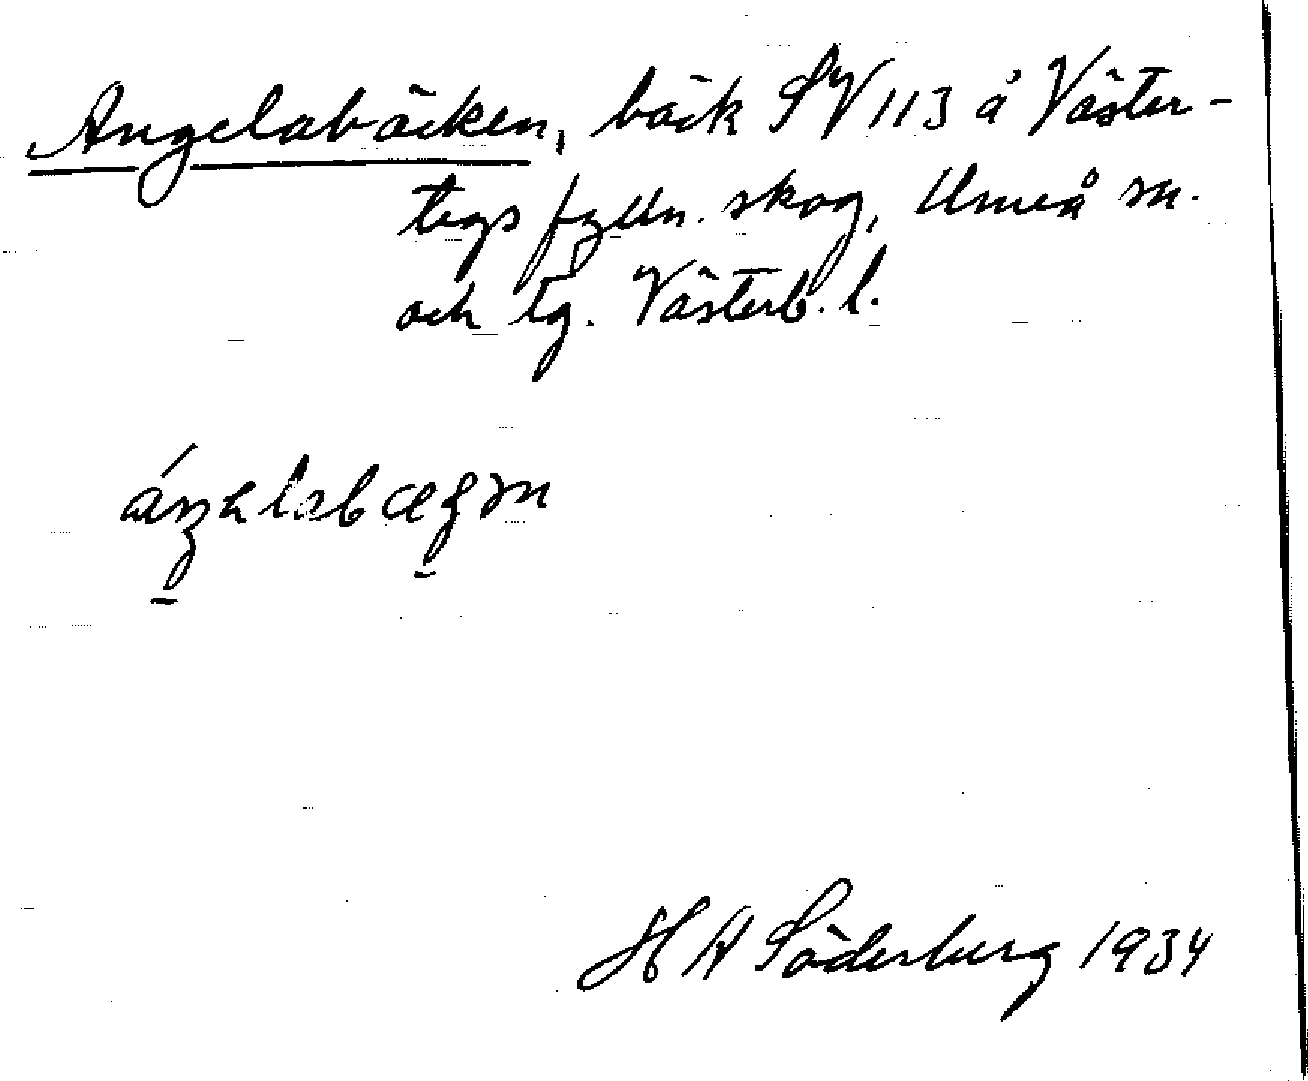 Angelabäcken, bäck SV 113 å Väster-
tegs fylln. skog, Umeå sn.
och tg. Västerb. l.
H A Söderberg 1934